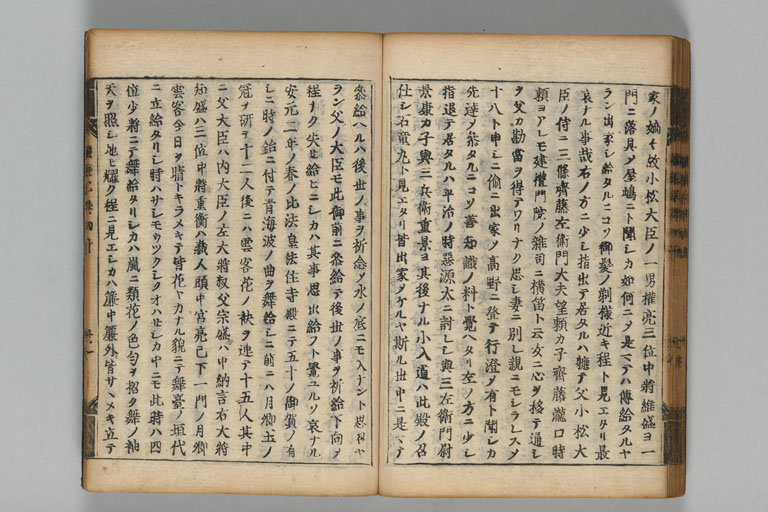 家ノ嫡々故小松大臣ノ一男權亮三位中將維盛ヨ一
門ニ落具メ屋嶋ニト聞シカ如何ニメ是マテハ傳給タルヤ
ラン出家シ給タルニコソ御髪ノ剃様近キ程ト見エタリ最
哀ナル事哉右ノ方ニ少シ指出テ居タルハ聴テ父小松大
臣ノ侍ニ三條齊藤左衛門大夫望頼カ子齊藤瀧口時
頼ヨアレモ建禮門院ノ雜司ニ横笛ト云女ニ心ヲ移テ通シ
ヲ父カ勘當ヲ得テワリナク思シ妻ニ別レ親ニモシラレスメ
十八ト申シニ偷ニ出家メ高野ニ登テ行澄メ有ト聞シカ
先達メ參タルニコソ善知識ノ料ト覺ヘタリ左ノ方ニ少シ
指退テ居タルハ平治ノ時惡源太ニ討レシ與三左衛門尉
景康カ子與三兵衛重景ヨ其後ナル小入道ハ此殿ノ召
仕シ石童丸ト見エタリ皆出家メケルヤ斯ル世中ニ是マテ
參給ヘルハ後世ノ事ヲ祈念メ水ノ底ニモ入ナント思召ヤ
ラン父ノ大臣モ此御前ニ參給テ後世ノ事ヲ祈給下向メ
程ナク失セ給ヒニシカハ其事思出給フト覺ユルソ哀ナル
安元二年ノ春ノ比法皇法住寺殿ニテ五十ノ御賀ノ有
シニ時ノ給ニ付テ青海波ノ曲ヲ舞給シニ前ニハ月卿玉ノ
冠ヲ研テ十二人後ニハ雲客花ノ袂ヲ連テ十五人其中
ニ父大臣ハ内大臣ノ左大將叔父宗盛ハ中納言右大將
知盛ハ三位中將重衡ハ藏人頭中宮亮已下一門ノ月卿
雲客今日ヲ晴トキラメキテ皆花ヤカナル貌ニテ舞臺ノ垣代
ニ立給タリシ時ハサシモウツクシクオハセシカ中ニモ此時ハ四
位少將ニテ舞給タリシカハ嵐ニ類花ノ色匂ヲ招ク舞ノ袖
天ヲ照シ地ヒ耀ク程ニ見エシカハ簾中簾外皆サヽメキ立テ